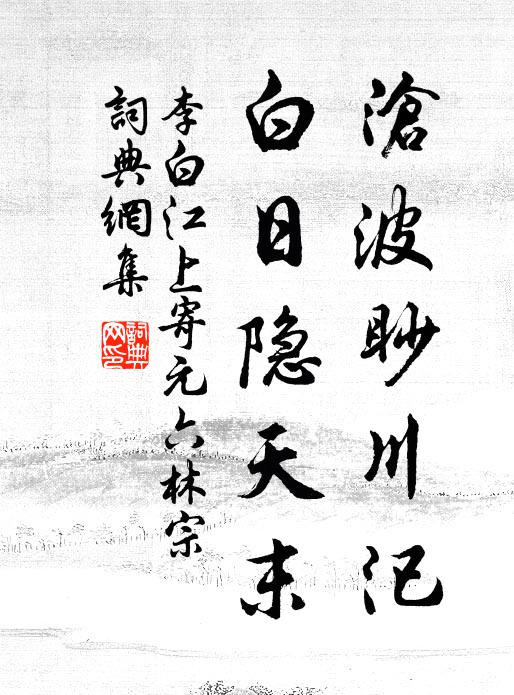 滄波眇川汜
白日隐天末
李白江上寄元六林宗
詞典網集
詞典網印